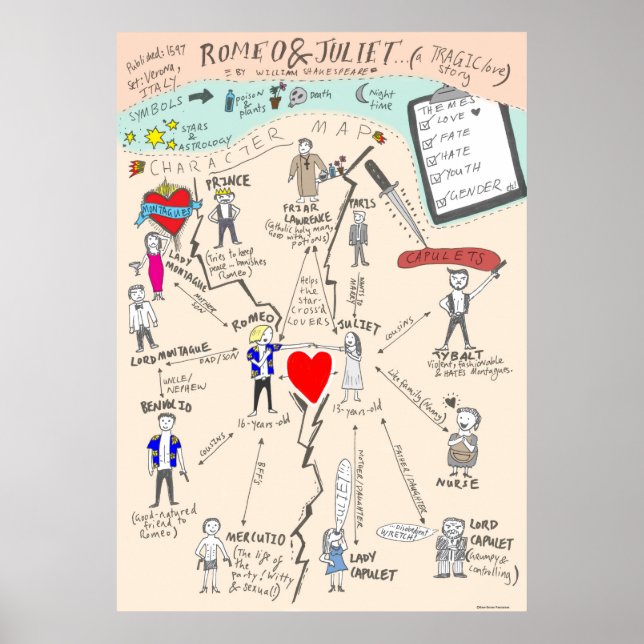 ROMEO & JULIET...(a TRAGIC love) story
= BY WILLIAM SHAKESPEARE =
Published: 1597
Set: Verona,
ITALY
SYMBOLS
poison
&
plants
Death
Night
time
STARS
&
ASTROLOGY
THEMES
LOVE
FATE
HATE
YOUTH
GENDER etc!
CHARACTER MAP
MONTAGUES
PRINCE
(Tries to keep
peace - banishes
Romeo)
FRIAR
LAWRENCE
(Catholic holy man,
Good with
potions)
PARIS
WANTS TO
MARRY
CAPULETS
LADY
MONTAGUE
MOTHER
SON
LORD MONTAGUE
DAD/SON
ROMEO
16-years-old
Helps
the
star-
cross'd
LOVERS
JULIET
13-years-old
COUSINS
TYBALT
Violent, fashionable
& HATES Montagues.
UNCLE/
NEPHEW
BENVOLIO
COUSINS
(Good-natured
friend to
Romeo)
BFF'S
MERCUTIO
(The life of
the
party! Witty
& sexual!)
MOTHER/DAUGHTER
LADY
CAPULET
FATHER/DAUGHTER
Like family (Nanny)
NURSE
...Disobedient
WRETCH!
LORD
CAPULET
(Grumpy &
controlling)